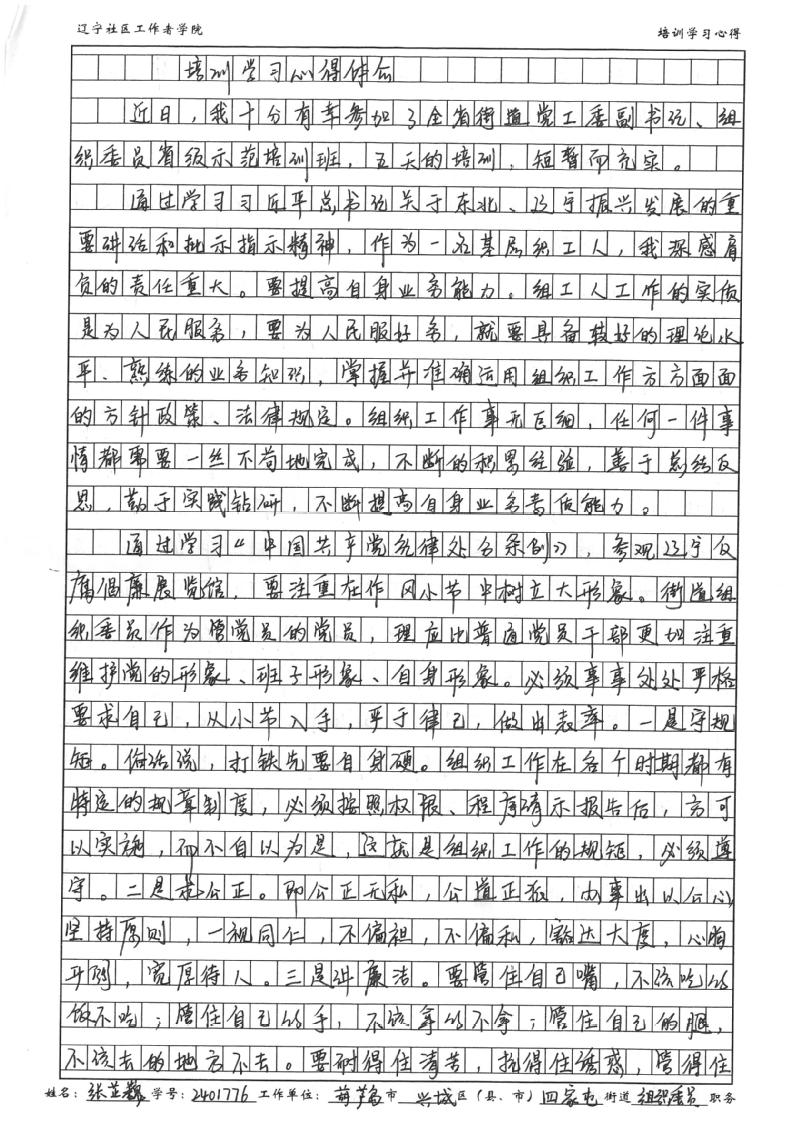 辽宁社区工作者学院 培训学习心得
培训学习心得体会
近日，我十分有幸参加了全省街道党工委副书记、组
织委员省级示范培训班，五天的培训，短暂而充实。
通过学习习近平总书记关于东北、辽宁振兴发展的重
要讲话和批示指示精神，作为一名基层组工人，我深感肩
负的责任重大。要提高自身业务能力。组工人工作的实质
是为人民服务，要为人民服好务，就要具备较好的理论水
平、熟练的业务知识，掌握并准确运用组织工作方方面面
的方针政策、法律规定。组织工作事无巨细，任何一件事
情都需要一丝不苟地完成，不断的积累经验，善于总结反
思，勤于实践钻研，不断提高自身业务素质能力。
通过学习《中国共产党纪律处分条例》，参观辽宁反
腐倡廉展览馆，要注重在作风小节中树立大形象。街道组
织委员作为管党员的党员，理应比普通党员干部更加注重
维护党的形象、班子形象、自身形象。必须事事处处严格
要求自己，从小节入手，严于律己，做出表率。一是守规
矩。俗话说，打铁先要自身硬。组织工作在各个时期都有
特定的规章制度，必须按照权限、程序请示报告后，方可
以实施，而不自以为是，这就是组织工作的规矩，必须遵
守。二是求公正。即公正无私，公道正派，办事出以公心，
坚持原则，一视同仁，不偏袒，不偏私，豁达大度，心胸
开阔，宽厚待人。三是讲廉洁。要管住自己嘴，不该吃的
饭不吃；管住自己的手，不该拿的不拿；管住自己的腿，
不该去的地方不去。要耐得住清苦，抗得住诱惑，管得住
姓名：张芷 学号：2401776 工作单位：葫芦岛市 兴城区（县、市）四家屯街道 组织委员 职务